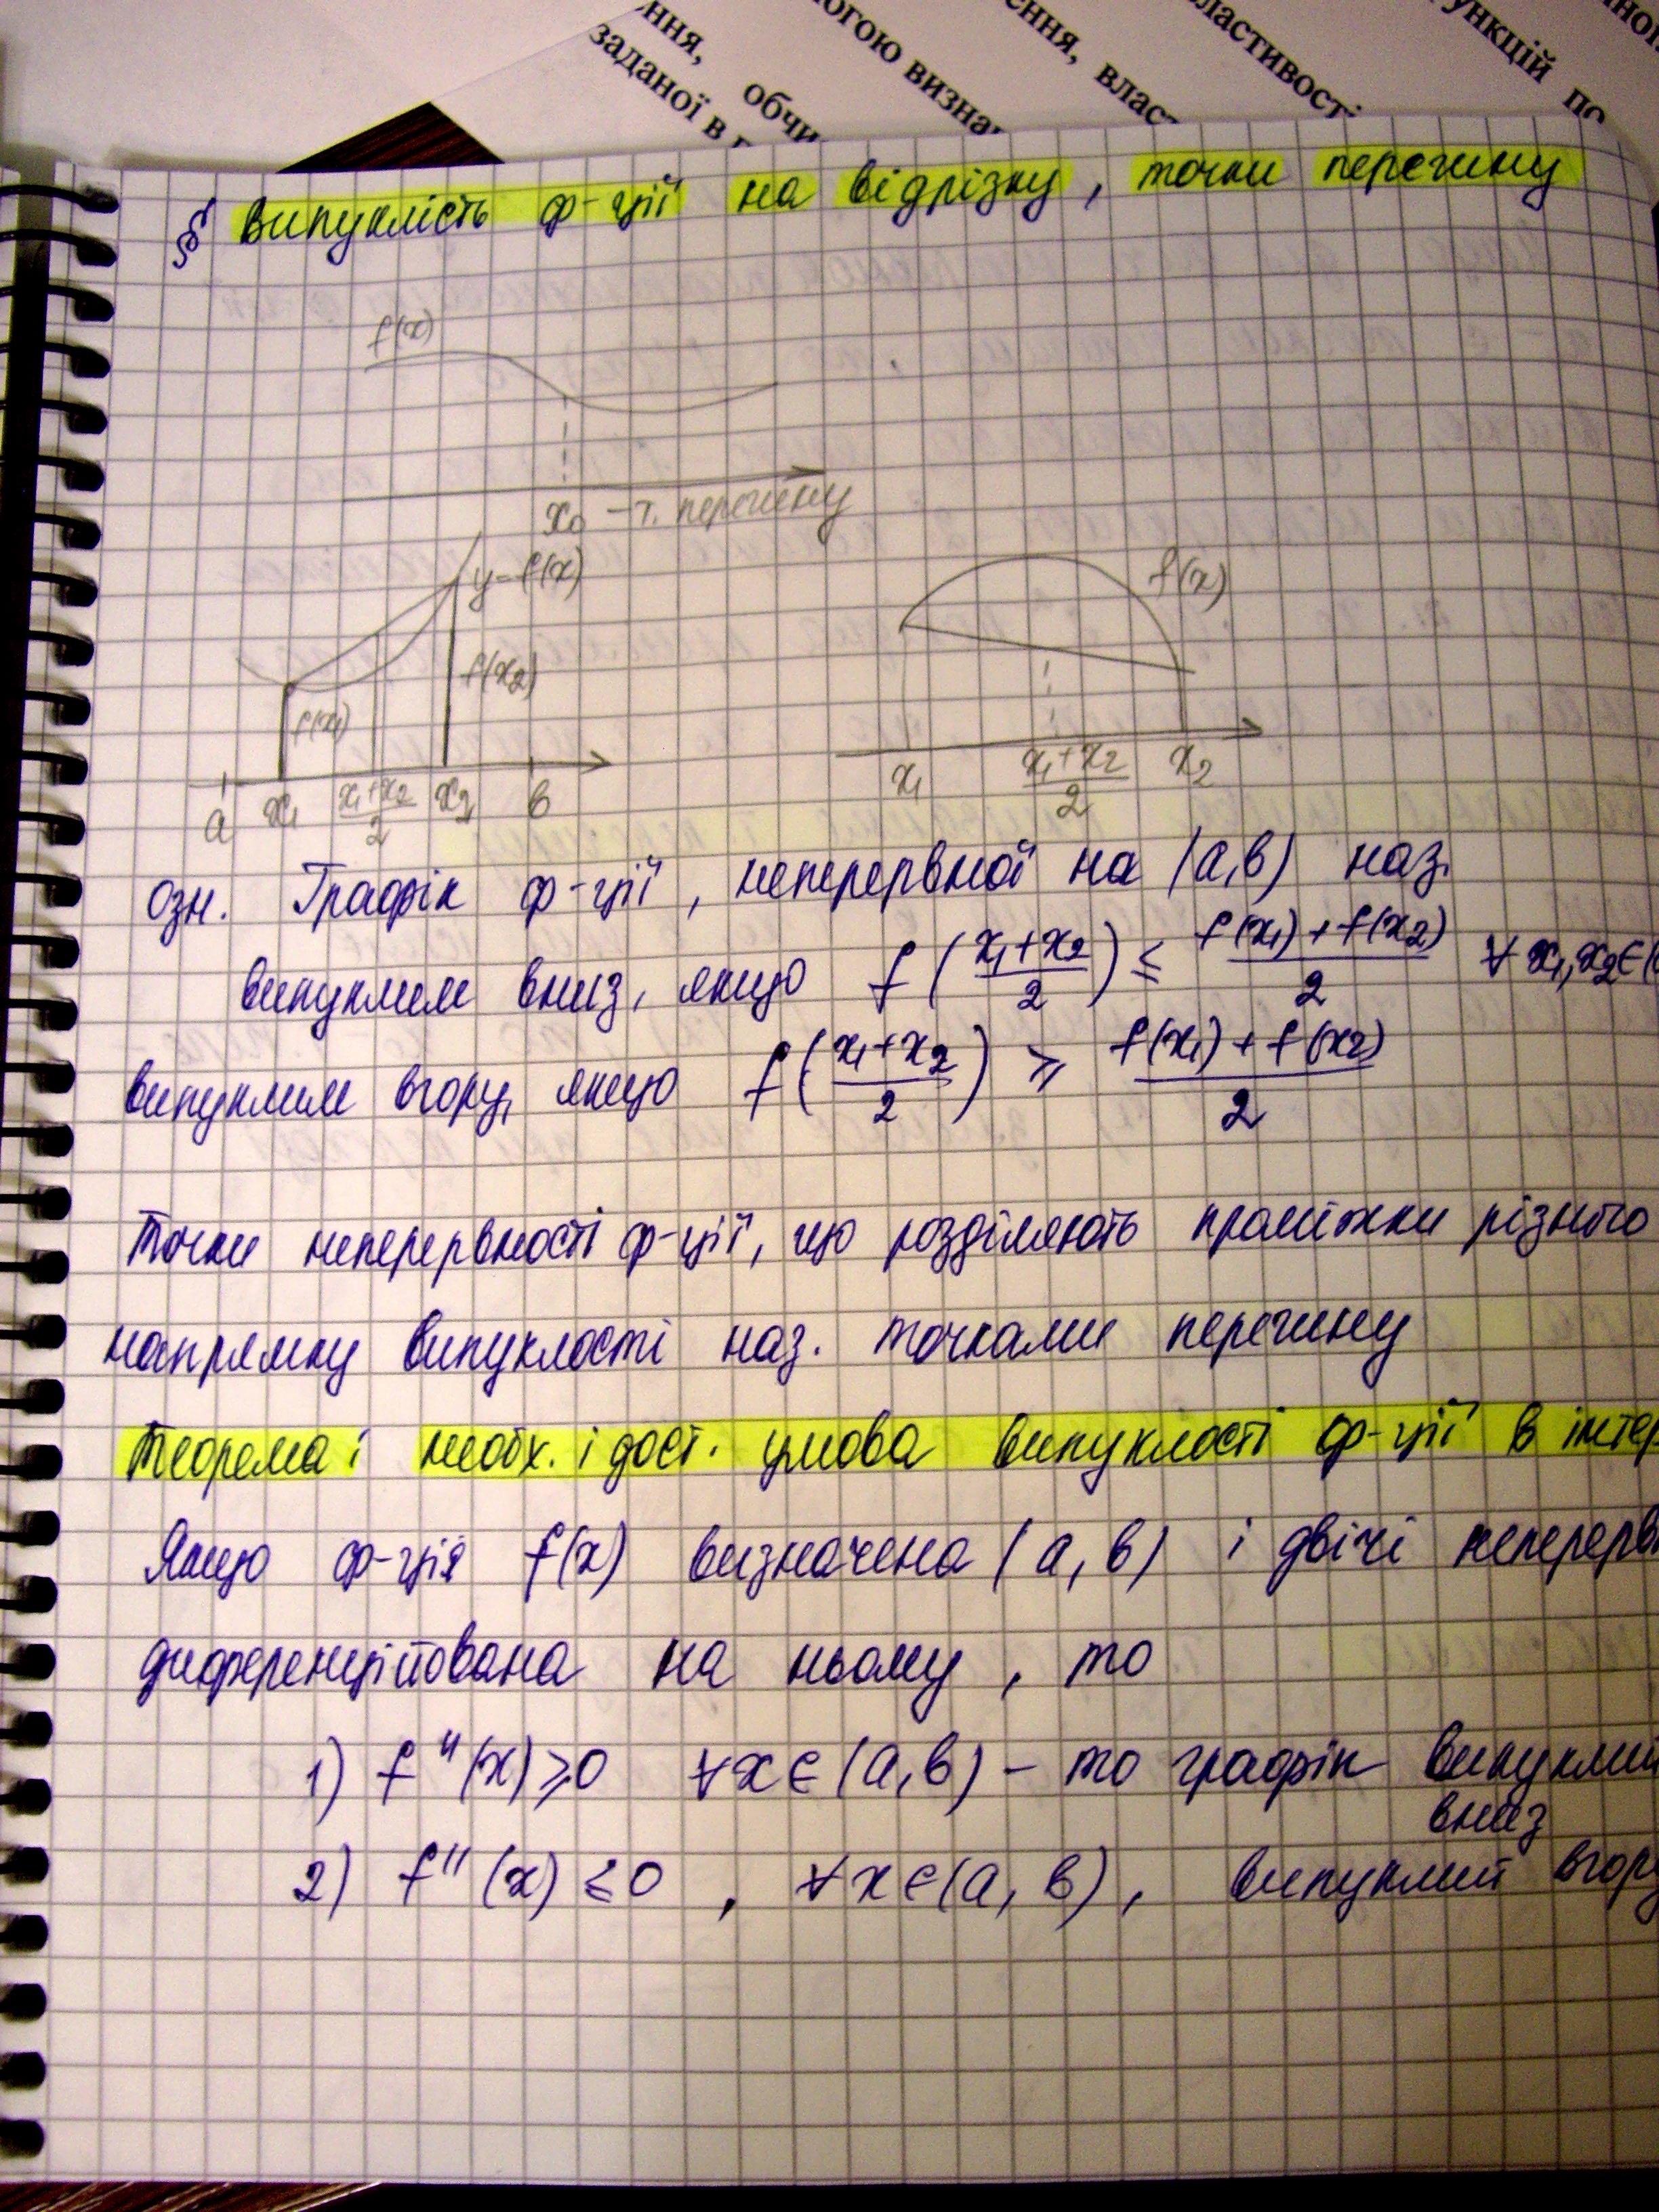 ння, обчи
заданої в
огою визна
ення, влас
ластивості
ункцій по
§ Випуклість ф-ції на відрізку, точки перегину
f(x)
x₀ – т. перегину
y=f(x)
f(x₁)
f(x₂)
a x₁ (x₁+x₂)/2 x₂ b
f(x)
x₁ (x₁+x₂)/2 x₂
Озн. Графік ф-ції, неперервної на (a,b) наз.
випуклим вниз, якщо f((x₁+x₂)/2) ≤ (f(x₁)+f(x₂))/2 ∀ x₁,x₂∈(
випуклим вгору, якщо f((x₁+x₂)/2) ≥ (f(x₁)+f(x₂))/2
Точки неперервності ф-ції, що розділяють проміжки різного
напрямку випуклості наз. точками перегину
Теорема: необх. і дост. умова випуклості ф-ції в інтер
Якщо ф-ція f(x) визначена (a, b) і двічі неперерв
диференційована на ньому, то
1) f''(x)≥0 ∀x∈(a,b) – то графік випуклий
вниз
2) f''(x) ≤0, ∀x∈(a, b), випуклий вгору